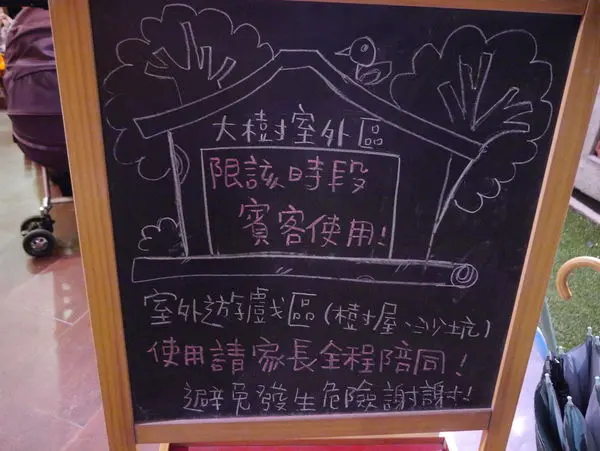 大樹室外區
限該時段
賓客使用!
室外遊戲區(樹屋、沙坑)
使用請家長全程陪同!
避免發生危險謝謝!